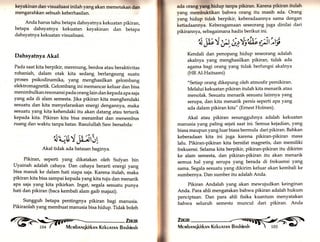 keyakinan dan visualisasi inilah yang akan menentukan dan
mengarahkan sebuah keberhasilan.
Anda harus tahu betapa dahsyatnya kekuatan pikiran,
betapa dahsyatnya kekuatan keyakinan dan betapa
dahsyatnya kekuatan visualisasi.
Dahsyatnya Akal
Pada saat kita berpikir, merenung, berdoa atau beraktivitas
ruhaniah, dalam otak kita sedang berlangsung suatu
proses psikodinamika, yang menghasilkan gelombang
elektromagnetik. Gelombang ini memancar keluar dan bisa
menimbulkan resonansi pada orang lain dan kepada apa saja
yang ada di alam semesta. Jika pikiran kita menghendaki
sesuatu dan kita menyelaraskan energi dengannya, maka
sesuatu yang kita kehendaki itu akan datang atau tertarik
kepada kita. Pikiran kita bisa merambat dan menembus
ruang dan waktu tanpa batas. Rasulullah Saw bersabda:
Akal tidak ada batasan baginya.
Pikiran, seperti yang dikatakan oleh Sufyan bin
Uyainah adalah cahaya. Dan cahaya berarti energi yang
bisa masuk ke dalam hati siapa saja. Karena itulah, maka
pikiran kita bisa sampai kepada yang kita tuju dan menarik
apa saja yang kita pikirkan. Ingat, segala sesuatu punya
hati dan pikiran (baca kembali alam gaib majazi).
Sungguh betapa pentingnya pikiran bagi manusia.
Pikiranlah yang membuat manusia bisa hidup. Tidak boleh
ZIKIR
104 / Membangkitkan Kekuatan Basmalah
ada orang yang hidup tanpa pikiran. Karena pikiran inilah
yang membuktikan bahwa orang itu masih ada. Orang
yang hidup tidak berpikir, keberadaannya sama dengan
ketiadaannya. Keberagamaan seseorang juga dinilai dari
pikirannya, sebagaimana hadis berikut ini:
Kendali dan penopang hidup seseorang adalah
akalnya yang menghasilkan pikiran, tidak ada
agama bagi orang yang tidak berfungsi akalnya
(HR Al-Haitsami)
"Setiap orang dikepung oleh atmosfir pemikiran.
Melalui kekuatan pikiran inilah kita menarik atau
menolak. Sesuatu menarik sesuatu lainnya yang
serupa, dan kita menarik persis seperti apa yang
ada dalam pikiran kita" (Ernest Holmes).
Akal atau pikiran sesungguhnya adalah kekuatan
manusia yang paling sejati saat ini. Semua kejadian, yang
biasa maupun yang luar biasa bermula dari pikiran. Bahkan
keberadaan kita ini juga karena pikiran-pikiran masa
lalu. Pikiran-pikiran kita bersifat magnetis, dan memiliki
frekuensi. Selama kita berpikir, pikiran-pikiran itu dikirim
ke alam semesta, dan pikiran-pikiran itu akan menarik
semua hal yang serupa yang berada di frekuensi yang
sama. Segala sesuatu yang dikirim keluar akan kembali ke
sumbernya. Dan sumber itu adalah Anda.
Pikiran Andalah yang akan mewujudkan keinginan
Anda. Para ahli mengatakan bahwa pikiran adalah hukum
penciptaan. Dan para ahli fisika kuantum menyatakan
bahwa seluruh semesta muncul dari pikiran. Anda
ZIKIR
Membangkitkan Kekuatan Basmalah \ 105